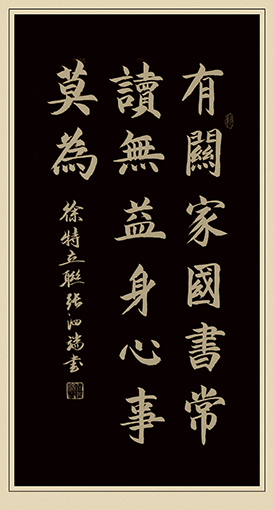 有關家國書常
讀無益身心事
莫為
徐特立聯張泗瑞書